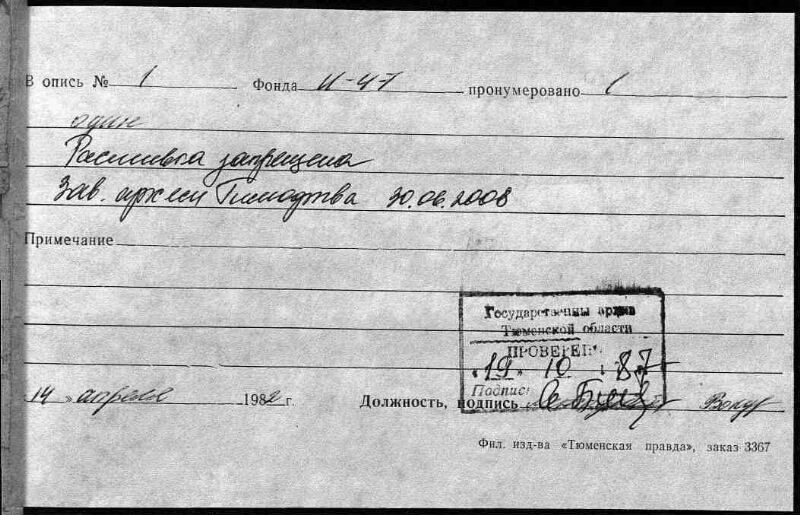 В опись № 1 Фонда И-47 пронумеровано 1
один
Расшивка запрещена
Зав. 30.06.2008
Примечание
Государственны архив
Тюменской области
ПРОВЕРЕН
"19" 10 1 87
Подпись
14 " апреля 1982 г. Должность, подпись
Фил. изд-ва «Тюменская правда», заказ 3367